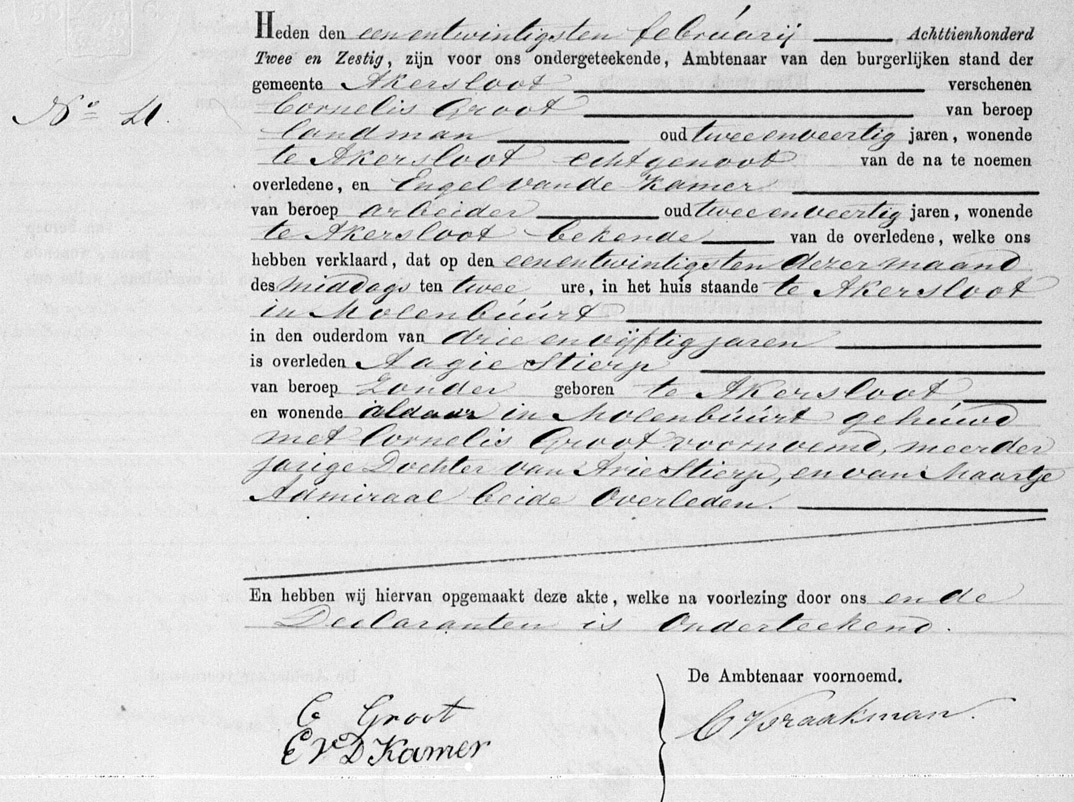 Heden den eenentwintigsten februarij Achttienhonderd
Twee en Zestig, zijn voor ons ondergeteekende, Ambtenaar van den burgerlijken stand der
gemeente Akersloot verschenen
No 4.
Cornelis Groot van beroep
landman oud tweeenveertig jaren, wonende
te Akersloot echtgenoot van de na te noemen
overledene, en Engel vande Kamer
van beroep arbeider oud tweeenveertig jaren, wonende
te Akersloot bekende van de overledene, welke ons
hebben verklaard, dat op den eenentwintigsten dezer maand
des middags ten twee ure, in het huis staande te Akersloot
in Molenbúúrt
in den ouderdom van drieenvijftig jaren
is overleden Aagie Stierp
van beroep Zonder geboren te Akersloot,
en wonende aldaar in Molenbúúrt gehúwd
met Cornelis Groot voornoemd, meerder
jarige Dochter van Arie Stierp, en van Maartje
Admiraal beide Overleden.
En hebben wij hiervan opgemaakt deze akte, welke na voorlezing door ons en de
Declaranten is Onderteekend.
De Ambtenaar voornoemd.
C Groot
E V D Kamer